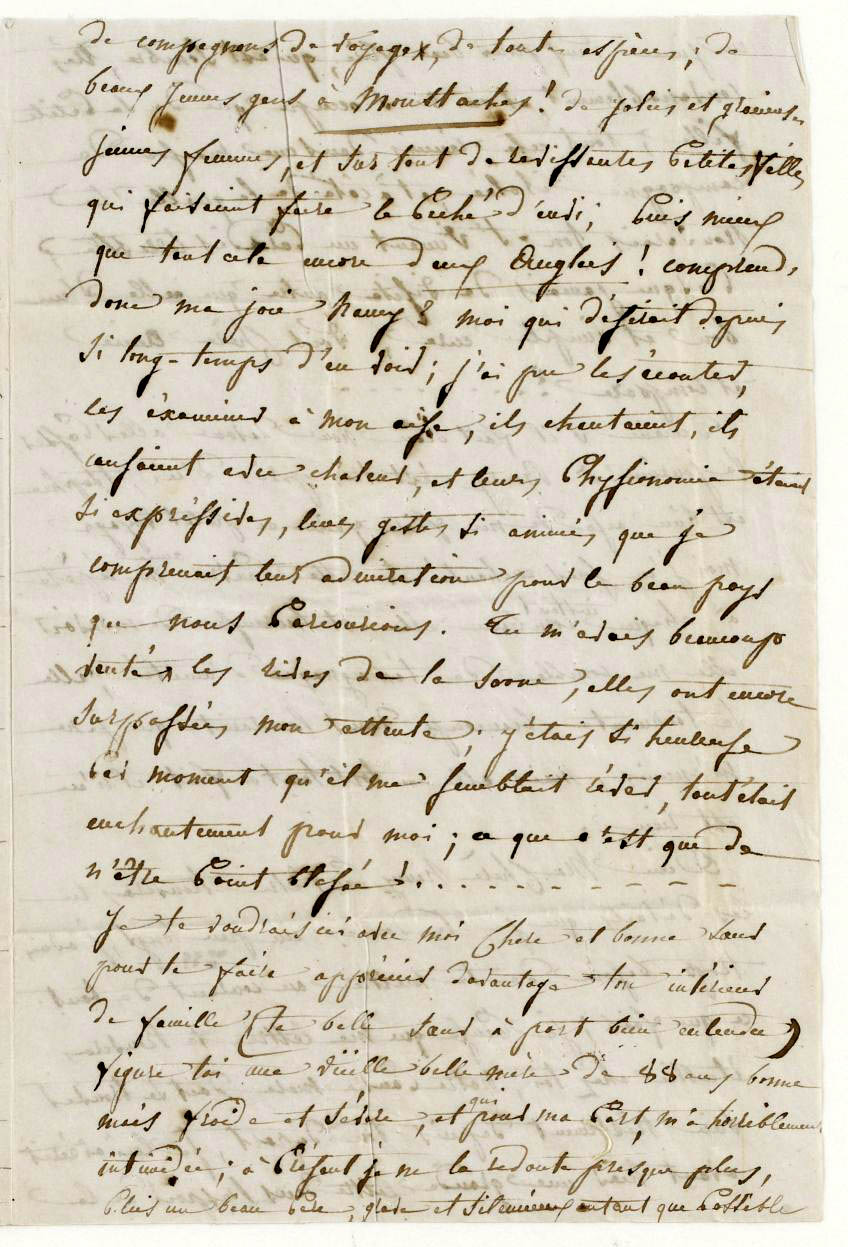 de compagnons de voyages, de toutes espèces ; de
beaux jeunes gens à Moustaches ! de jolies et gracieuses
jeunes femmes, et sur tout de ravissantes Petites filles
qui faisaient faire le Péché d'envi ; Puis mieux
que tout cela encore deux Anglais ! comprend,
donc ma joie Nancy ? moi qui désirait depuis
si long-temps d'en voir ; j'ai pu les écouter,
les éxaminer à mon aise, ils chantaient, ils
causaient avec chaleur, et leurs Physionomie étaient
si expréssives, leurs gestes si animés que je
comprenait leur admiration pour le beau pays
que nous Parcourions. Tu m'avais beaucoup
vantés les rives de la Saone, elles ont encore
surpassées mon attente ; j'étais si heureuse
Par moment qu'il me semblait rêver, tout était
enchantement pour moi ; ce que c'est que de
n'être Point blasée ! . . . . - - - - - -
Je te voudrais ici avec moi Chere et bonne Sœur
pour te faire apprécier davantage ton intérieur
de famille (ta belle sœur à part bien entendu)
figure toi une vieille belle mère de 88 ans bonne
mais froide et sévère, et qui pour ma Part, m'a horriblement
intimidée ; à Présent je ne la redoute presque plus,
Puis un beau Père, grave et silencieux autant que Possible